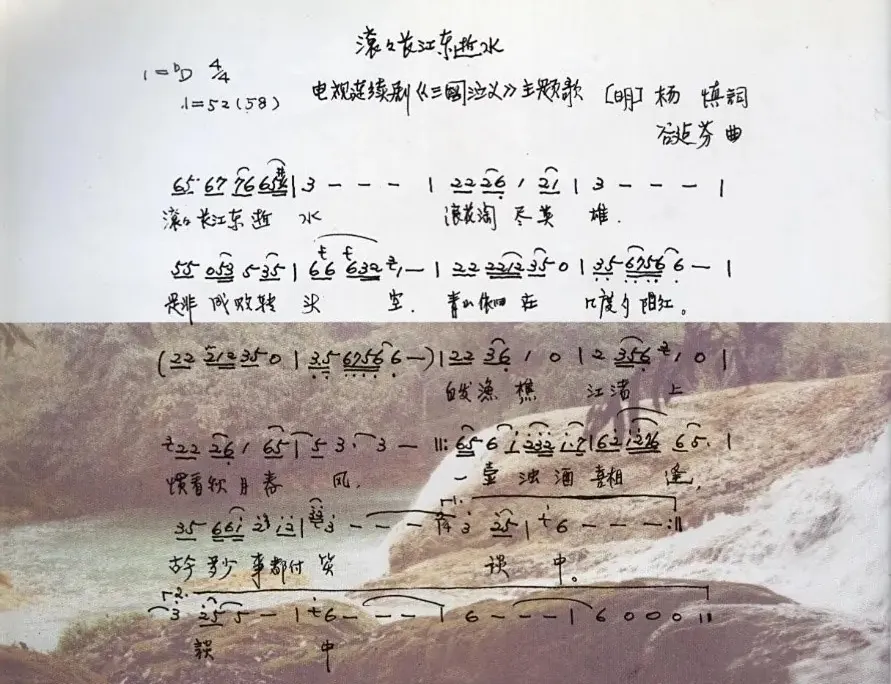 滚々长江东逝水
1=ᵇD 4/4
♩=52(58)
电视连续剧《三國演义》主题歌 [明]杨 慎詞
谷建芬 曲
65 67 76 65 | 3 - - - | 22 26 1 21 | 3 - - - |
滚々长江东逝 水 浪花淘 尽英 雄.
55 053 5 35 | 66 632 1 - | 22 2212 35 0 | 35 6756 6 - |
是非 成败转 头 空. 青山依旧 在 几度夕阳红。
(22 212 35 0 | 35 6756 6 -) | 22 36 1 0 | 2 356 1 0 |
白发渔 樵 江渚 上
22 26 1 65 | 5 3· 3 - ‖: 65 6 1 232 1·7 | 62 1276 65· |
惯看秋月春 风. 一壶 浊 酒 喜相 逢,
35 661 23 12 | 3 - - - | 3 25 | 6 - - - :‖
古今 多少 事都付 笑 谈 中。
3 25 5 - | 6 - - - | 6 - - - | 6 0 0 0 ‖
談 中